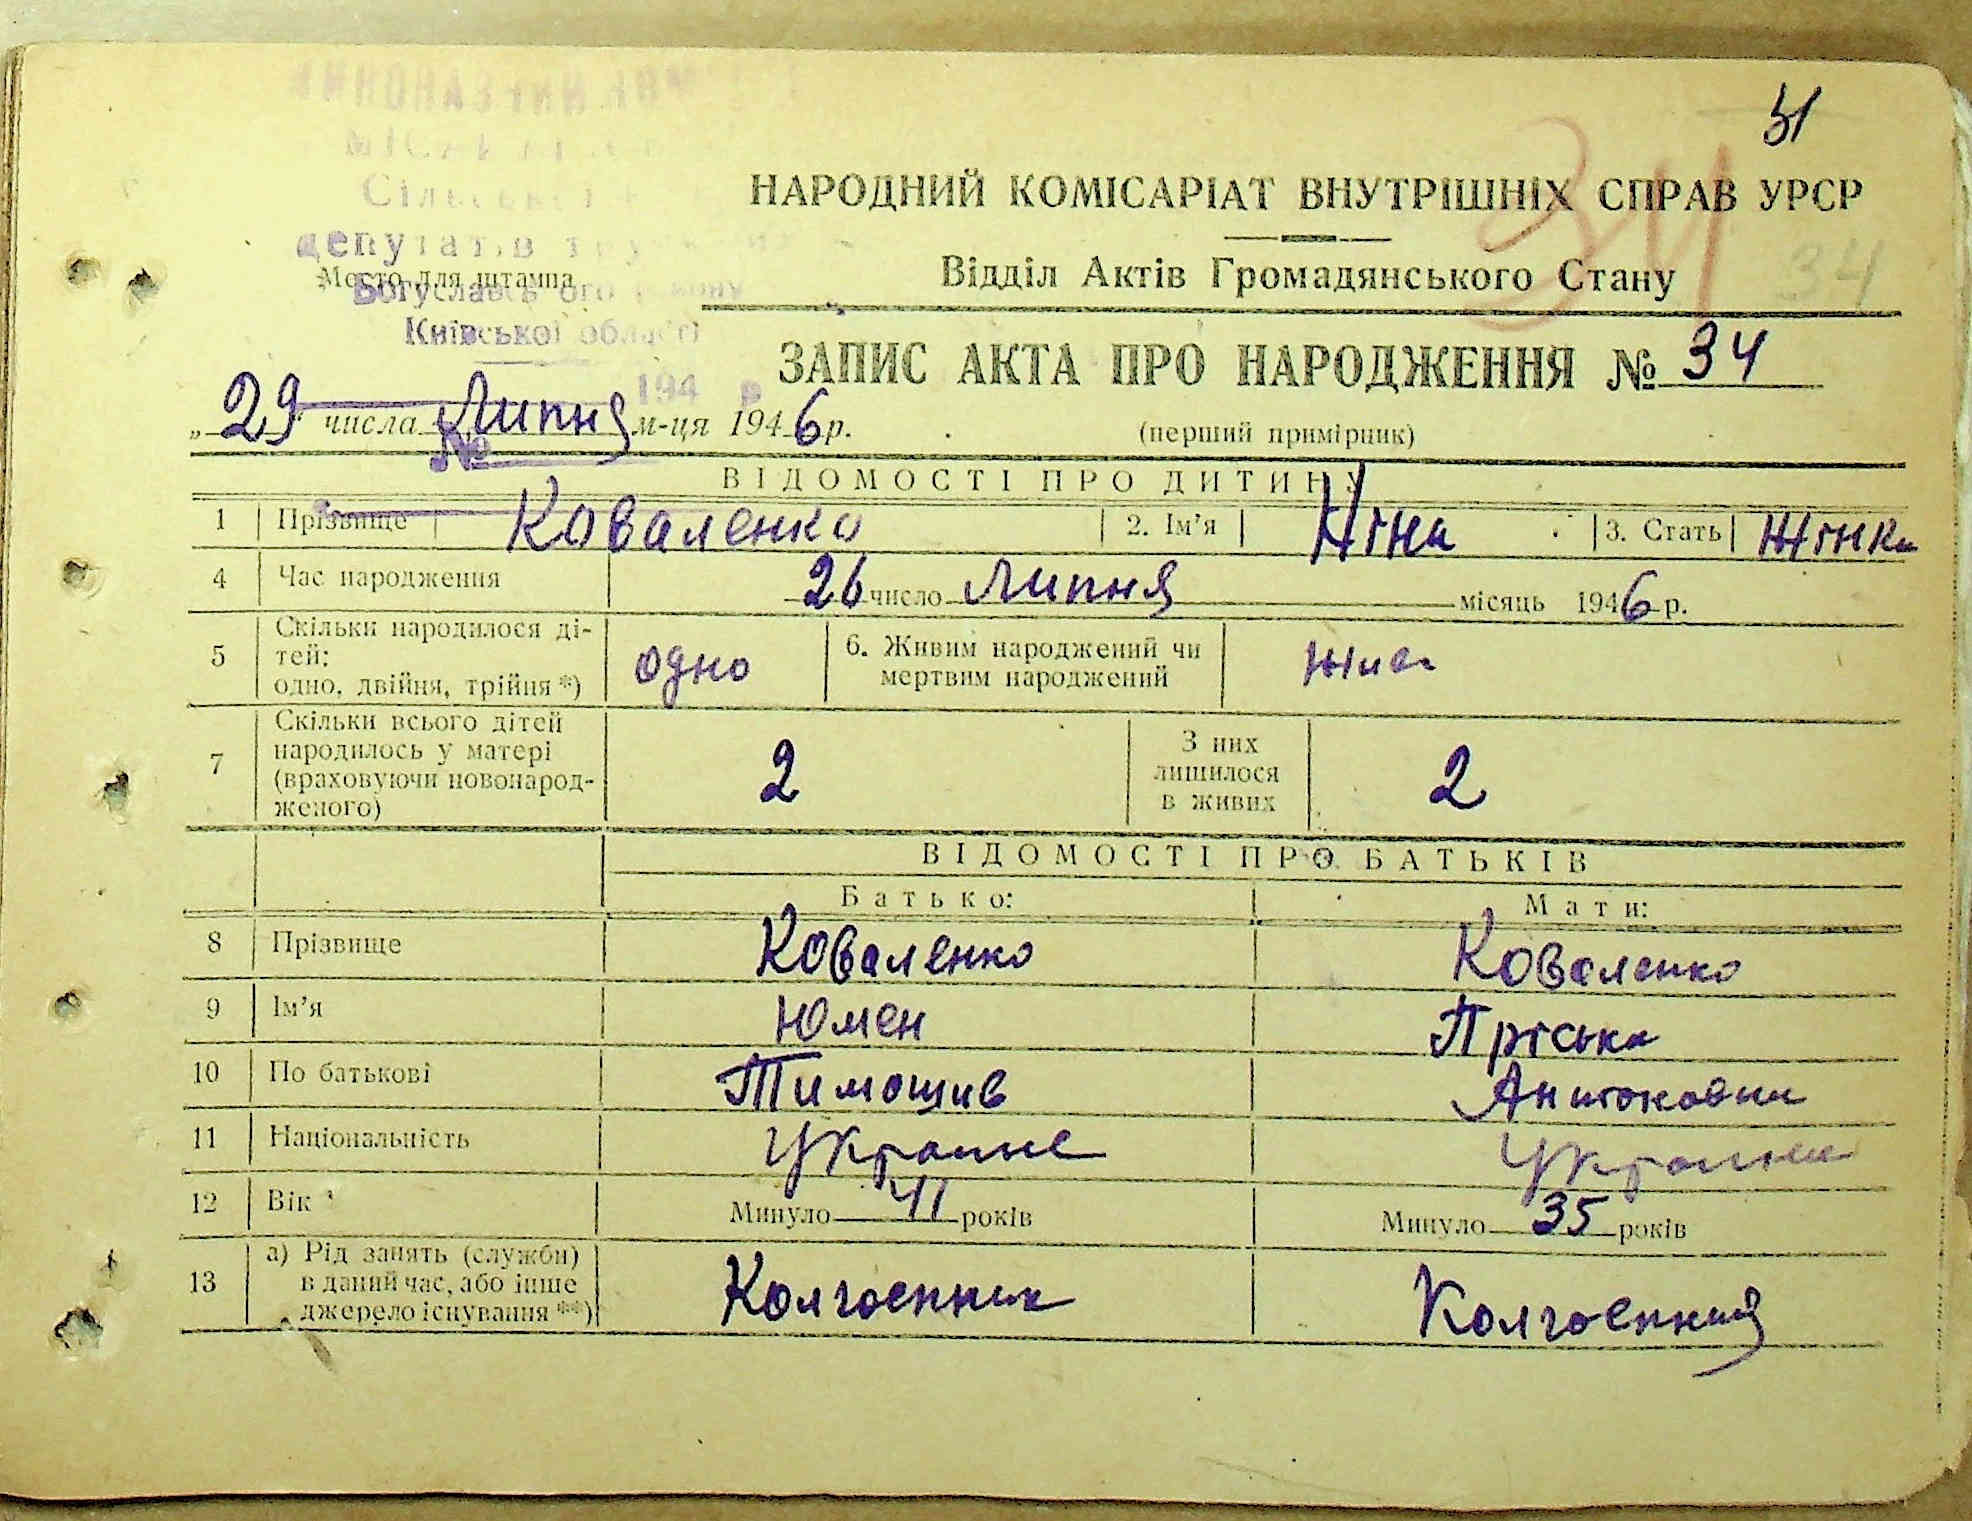 31
НАРОДНИЙ КОМІСАРІАТ ВНУТРІШНІХ СПРАВ УРСР
34
Відділ Актів Громадянського Стану
34
Место для штампа
Сільської
депутатів
Богуславського району
Київської області
194 р
№
ЗАПИС АКТА ПРО НАРОДЖЕННЯ № 34
„ 29 числа Липня м-ця 1946 р.
(перший примірник)
ВІДОМОСТІ ПРО ДИТИНУ
1 Прізвище Коваленко 2. Ім'я Ніна 3. Стать Жінка
4 Час народження 26 число Липня місяць 1946 р.
5 Скільки народилося ді-
тей:
одно, двійня, трійня *) одно 6. Живим народжений чи
мертвим народжений
7 Скільки всього дітей
народилось у матері
(враховуючи новонарод-
женого) 2 З них
лишилося
в живих 2
ВІДОМОСТІ ПРО БАТЬКІВ
Батько: Мати:
8 Прізвище Коваленко Коваленко
9 Ім'я Юмен Пріська
10 По батькові Тимошив
11 Національність Украине Украине
12 Вік Минуло 41 років Минуло 35 років
13 а) Рід занять (служби)
в даний час, або інше
джерело існування **) Колгоспник Колгоспниця